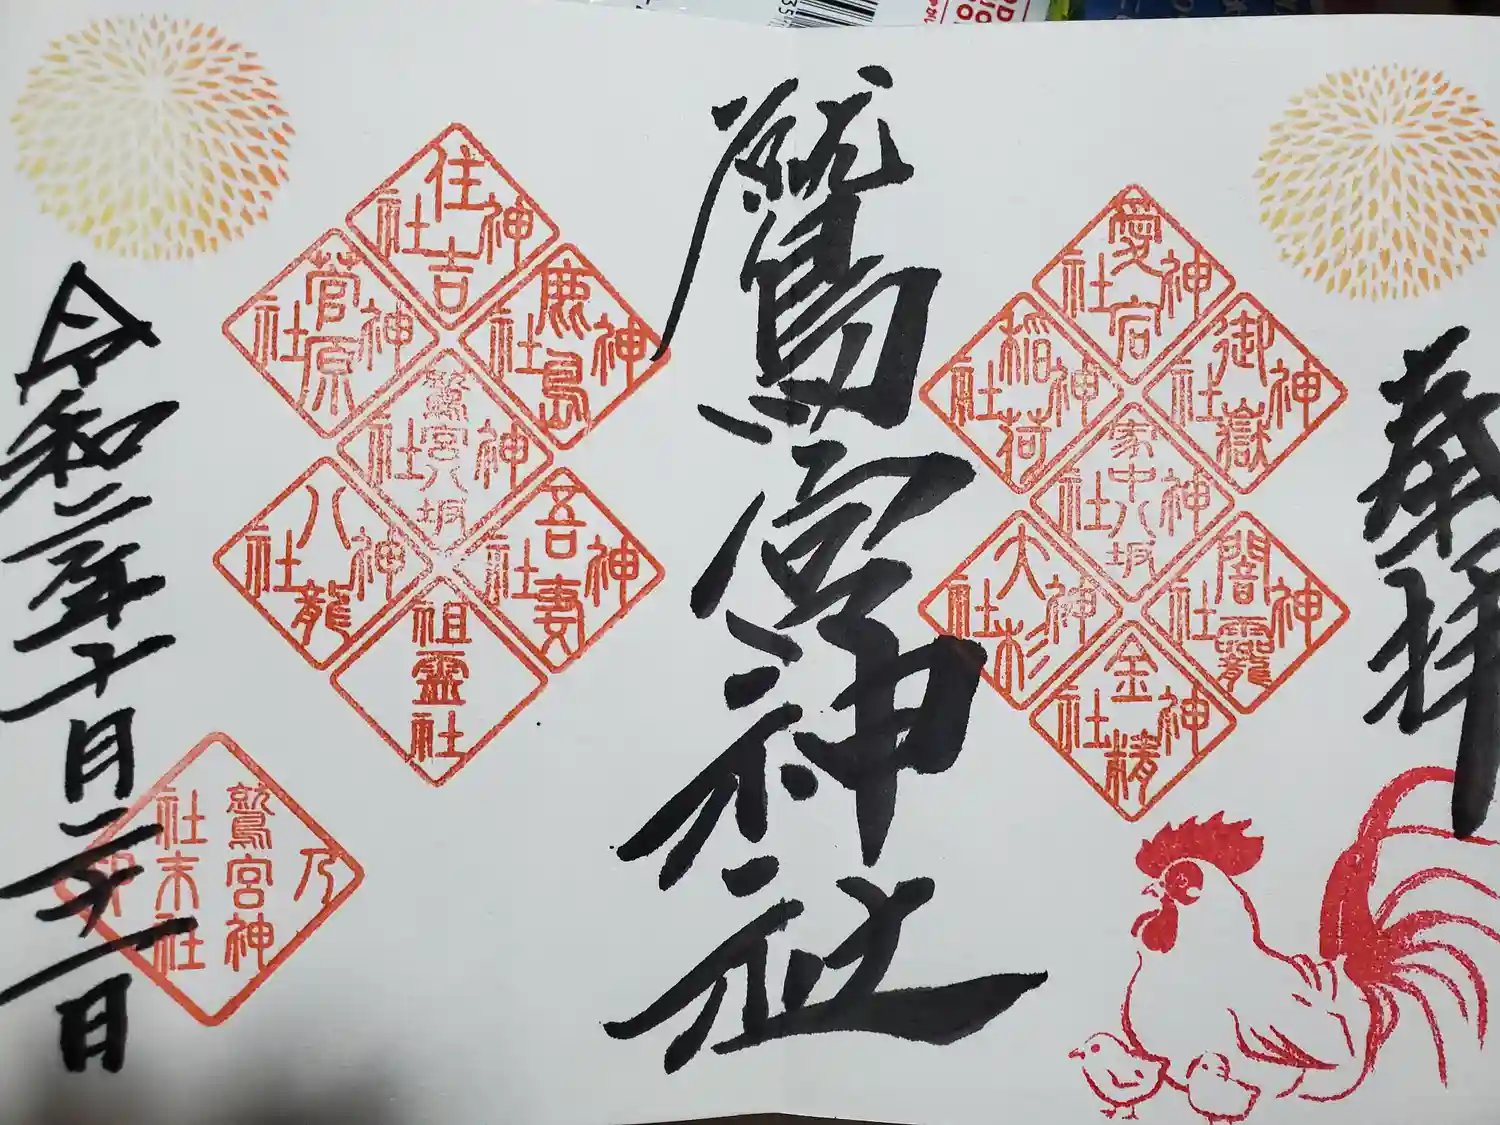 奉拝
愛宕神社
御嶽神社
稲荷神社
家中八坂神社
闇龗神社
大杉神社
金精神社
鷲宮神社
住吉神社
鹿島神社
菅原神社
鷲宮八坂神社
吾妻神社
八龍神社
祖霊社
鷲宮神
社末社
令和二年十一月二十一日